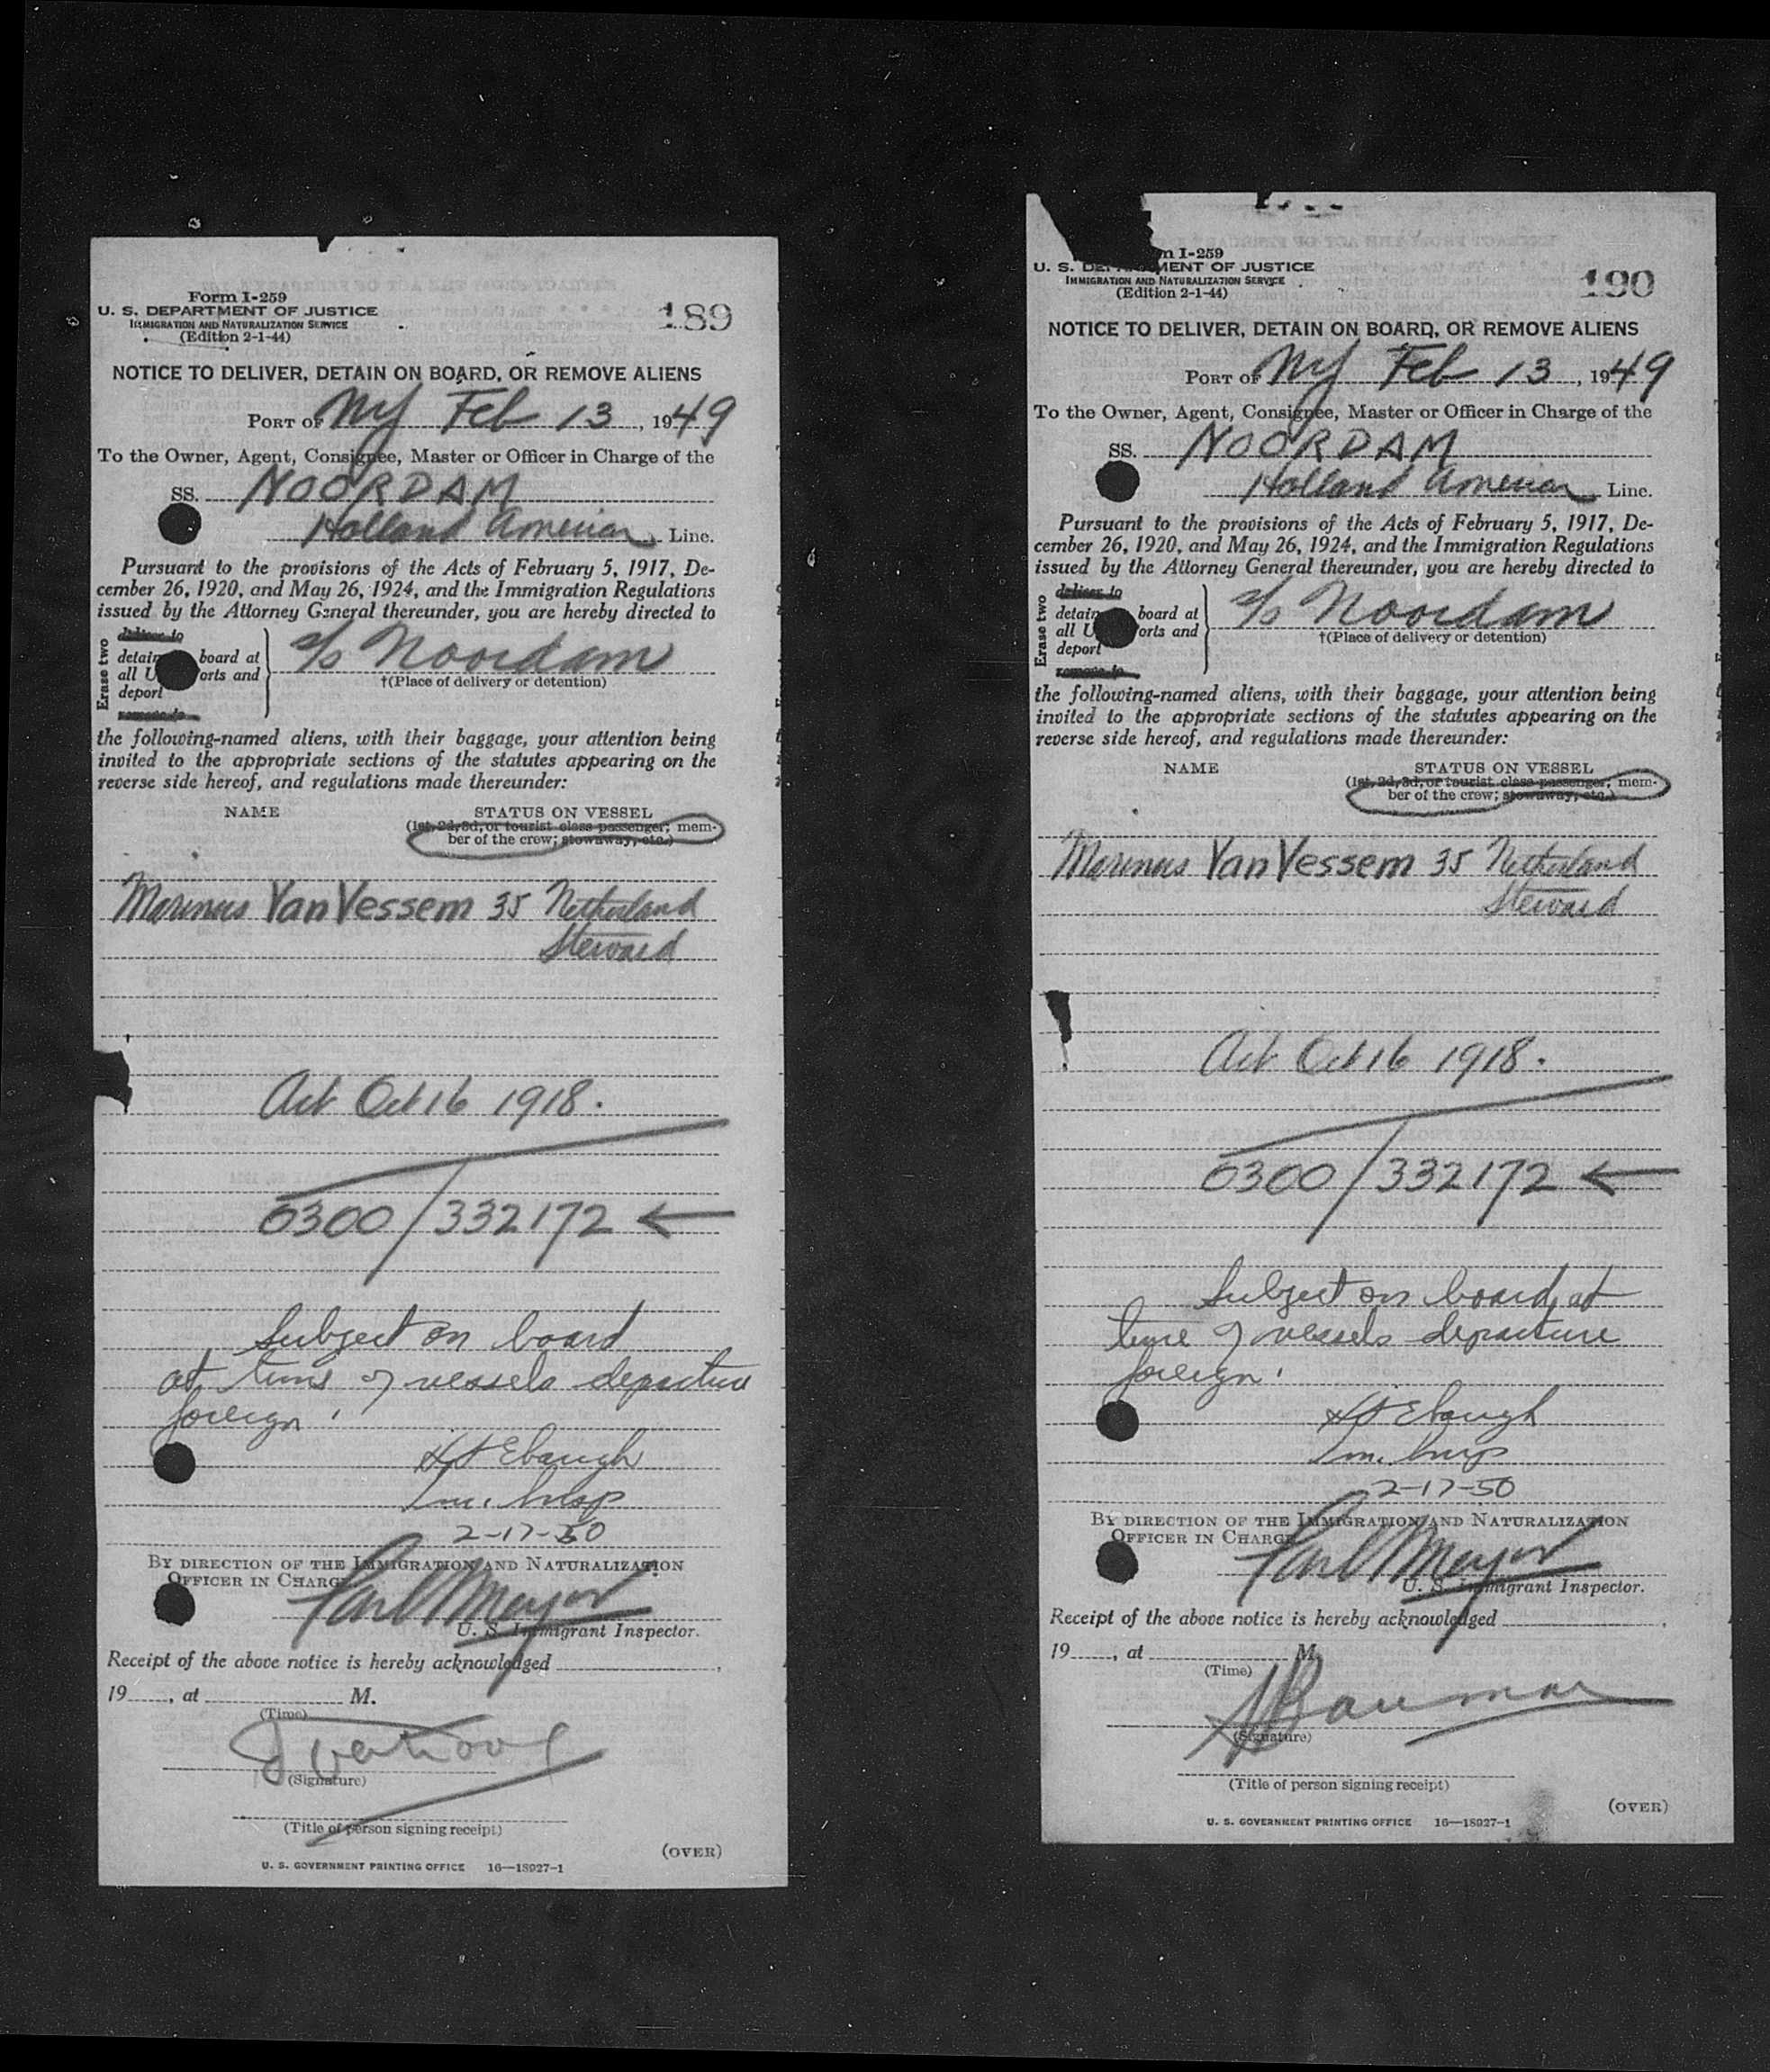 Form I-259
U. S. DEPARTMENT OF JUSTICE
IMMIGRATION AND NATURALIZATION SERVICE
(Edition 2-1-44)
189
NOTICE TO DELIVER, DETAIN ON BOARD, OR REMOVE ALIENS
PORT OF NY Feb 13, 1949
To the Owner, Agent, Consignee, Master or Officer in Charge of the
SS. NOORDAM
Holland American Line.
Pursuant to the provisions of the Acts of February 5, 1917, De-
cember 26, 1920, and May 26, 1924, and the Immigration Regulations
issued by the Attorney General thereunder, you are hereby directed to
Erase two
deliver to
detain board at
all U orts and
deport
remove to
s/s Noordam
†(Place of delivery or detention)
the following-named aliens, with their baggage, your attention being
invited to the appropriate sections of the statutes appearing on the
reverse side hereof, and regulations made thereunder:
NAME STATUS ON VESSEL
(1st, 2d, 3d, or tourist class passenger; mem-
ber of the crew; stowaway, etc.)
Marinus Van Vessem 35 Netherland
Steward
Act Oct 16 1918.
0300/332172 ←
Subject on board
at time of vessels departure
foreign.
Ebaugh
Im. Insp
2-17-50
BY DIRECTION OF THE IMMIGRATION AND NATURALIZATION
OFFICER IN CHARGE
Meyer
U. S. Immigrant Inspector.
Receipt of the above notice is hereby acknowledged
19, at M.
(Time)
(Signature)
(Title of person signing receipt)
(OVER)
U. S. GOVERNMENT PRINTING OFFICE 16—18927-1
m I-259
U. S. DEPARTMENT OF JUSTICE
IMMIGRATION AND NATURALIZATION SERVICE
(Edition 2-1-44)
190
NOTICE TO DELIVER, DETAIN ON BOARD, OR REMOVE ALIENS
PORT OF NY Feb 13, 1949
To the Owner, Agent, Consignee, Master or Officer in Charge of the
SS. NOORDAM
Holland American Line.
Pursuant to the provisions of the Acts of February 5, 1917, De-
cember 26, 1920, and May 26, 1924, and the Immigration Regulations
issued by the Attorney General thereunder, you are hereby directed to
Erase two
deliver to
detain board at
all U orts and
deport
remove to
s/s Noordam
†(Place of delivery or detention)
the following-named aliens, with their baggage, your attention being
invited to the appropriate sections of the statutes appearing on the
reverse side hereof, and regulations made thereunder:
NAME STATUS ON VESSEL
(1st, 2d, 3d, or tourist class passenger; mem-
ber of the crew; stowaway, etc.)
Marinus Van Vessem 35 Netherland
Steward
Act Oct 16 1918.
0300/332172 ←
Subject on board at
time of vessels departure
foreign.
Ebaugh
Im. Insp
2-17-50
BY DIRECTION OF THE IMMIGRATION AND NATURALIZATION
OFFICER IN CHARGE
Meyer
U. S. Immigrant Inspector.
Receipt of the above notice is hereby acknowledged
19, at M.
(Time)
(Signature)
(Title of person signing receipt)
(OVER)
U. S. GOVERNMENT PRINTING OFFICE 16—18927-1